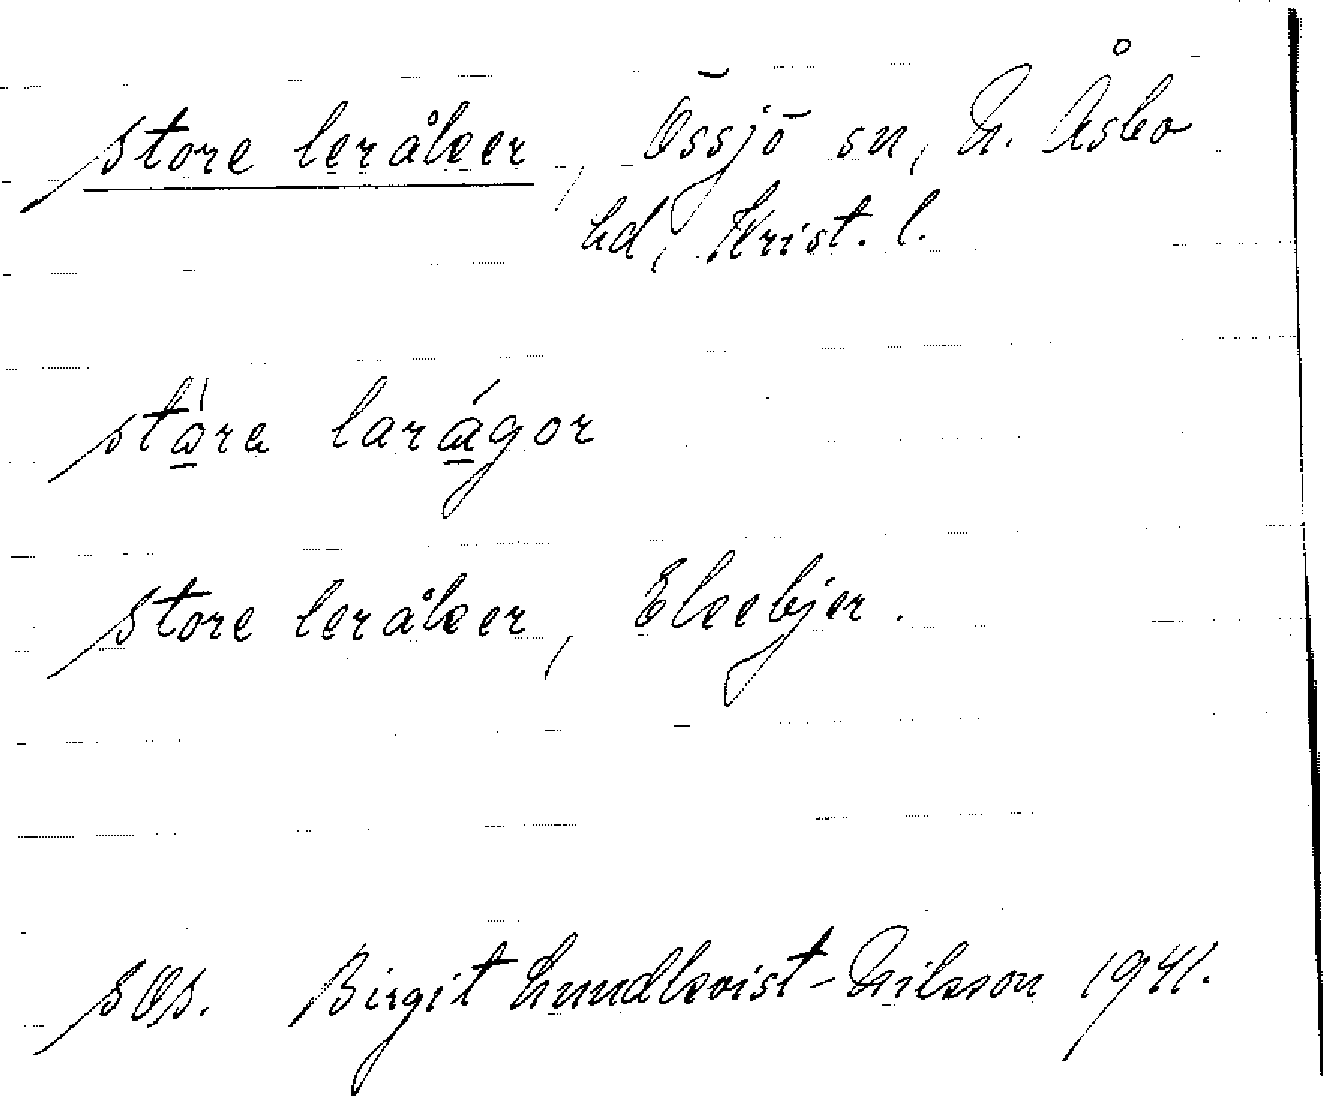 store leråker, Össjö sn, N. Åsbo
hd, Krist. l.
stǻra larágor
store leråker, Ekebjer.
sås. Birgit Lundkvist-Nilsson 1941.